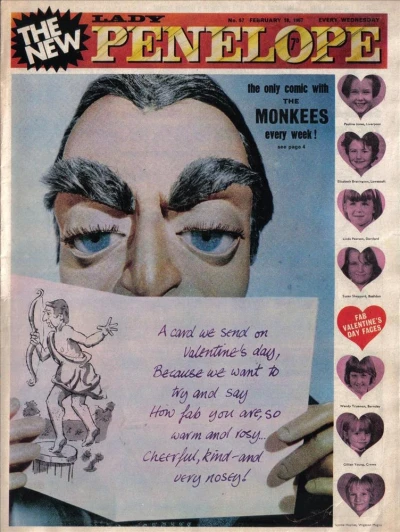 THE
NEW
LADY
No. 57 FEBRUARY 18, 1967 EVERY WEDNESDAY
PENELOPE
the only comic with
THE
MONKEES
every week!
see page 4
FAB
VALENTINE'S
DAY FACES
A card we send on
Valentine's day,
Because we want to
try and say
How fab you are, so
warm and rosy...
Cheerful, kind - and
very nosey!
Gillian Young, Crewe